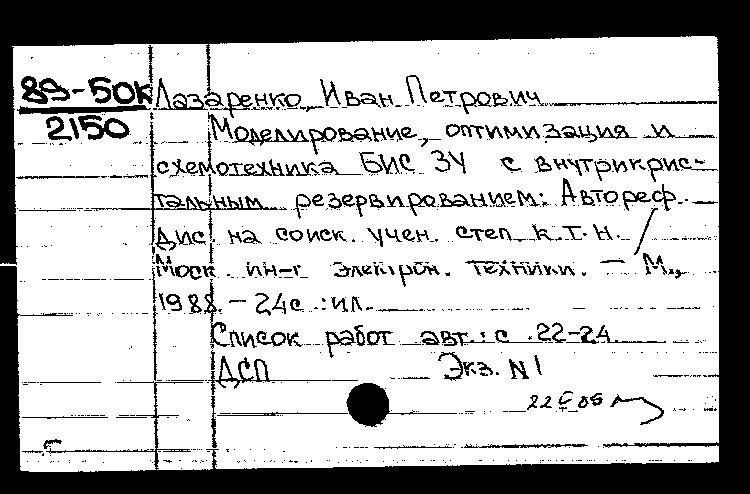 89-50К
2150
Лазаренко, Иван Петрович
Моделирование, оптимизация и
схемотехника БИС ЗУ с внутрикрис-
тальным резервированием: Автореф.
дис. на соиск. учен. степ. к.т.н. /
Моск. ин-т электрон. техники. — М.,
1988. — 24с.: ил.
Список работ авт.: с. 22-24
ДСП Экз. N1